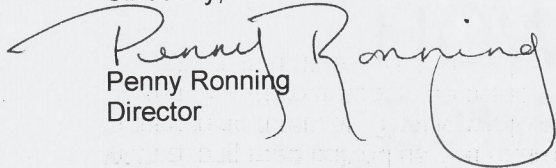 Penny Ronning
Penny Ronning
Director